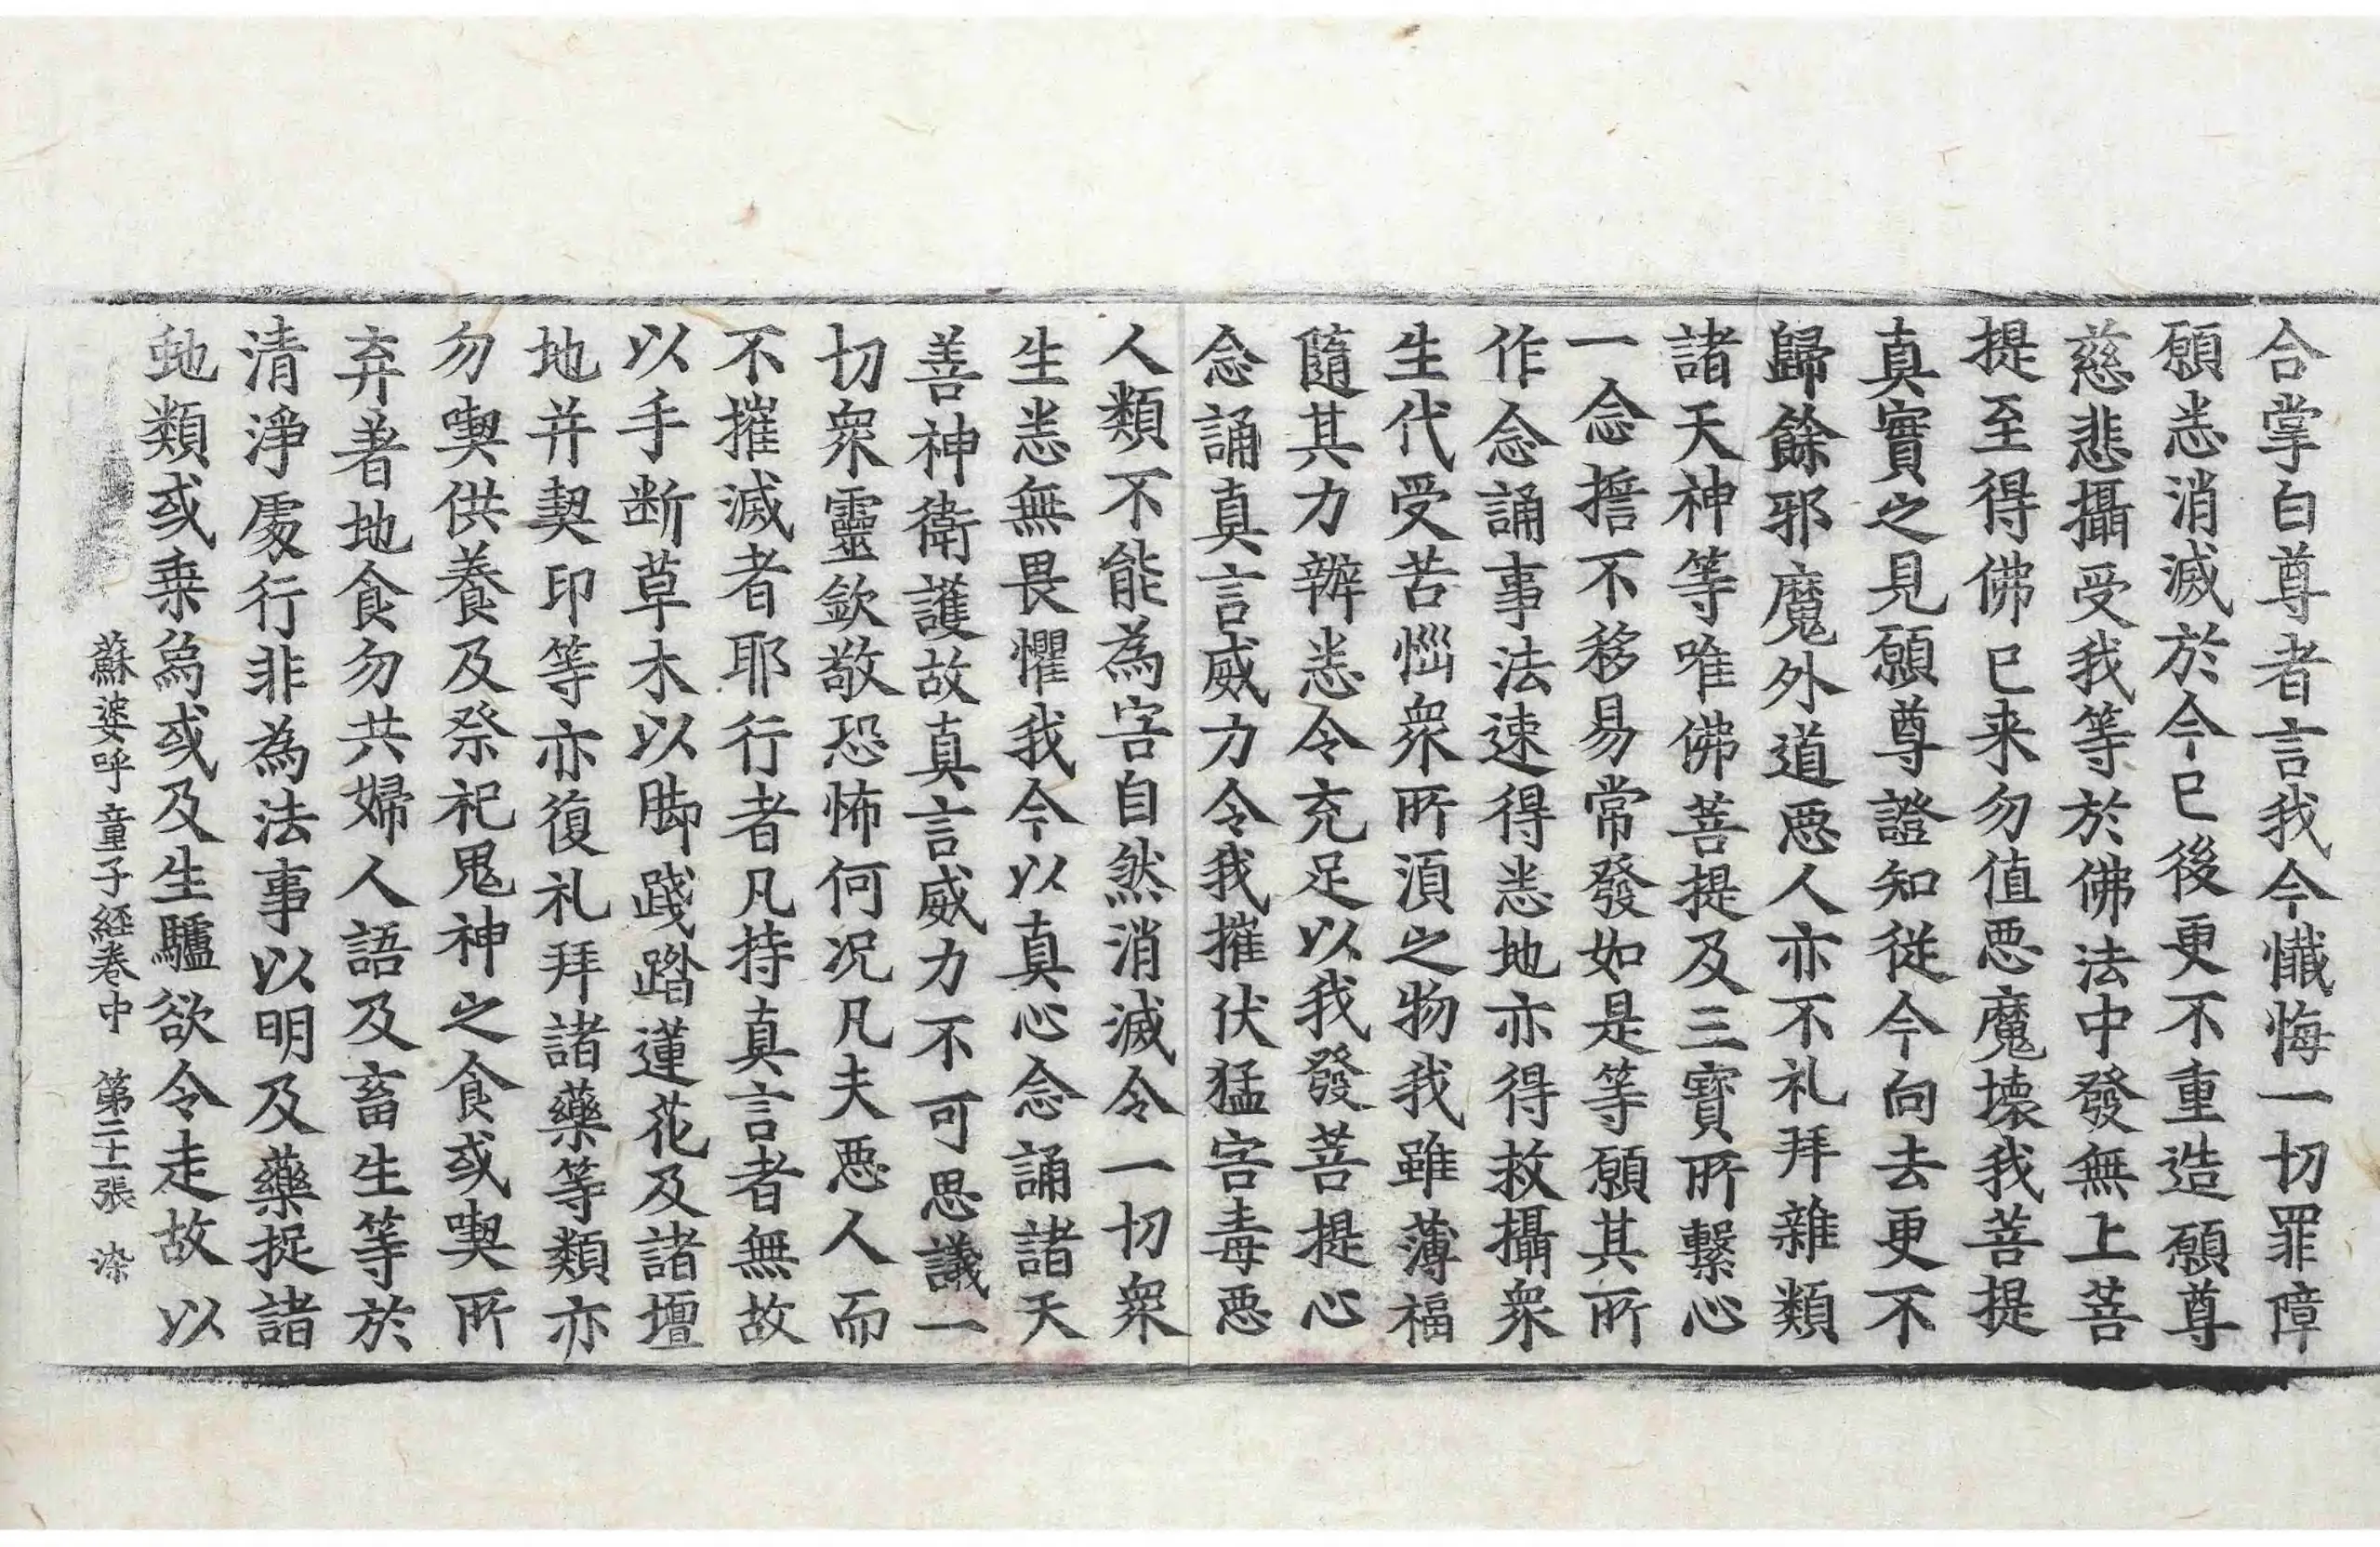 合掌白尊者言我今懺悔一切罪障
願悉消滅於今已後更不重造願尊
慈悲攝受我等於佛法中發無上菩
提至得佛已来勿值惡魔壊我菩提
真實之見願尊證知從今向去更不
歸餘邪魔外道惡人亦不礼拜雜類
諸天神等唯佛菩提及三寶所繫心
一念擔不移易常發如是等願其所
作念誦事法速得悉地亦得救攝衆
生代受苦惱衆所湏之物我雖薄福
隨其力辦悉令充足以我發菩提心
念誦真言威力令我摧伏猛害毒惡
人類不能為害自然消滅令一切衆
生悉無畏懼我今以真心念誦諸天
善神衛護故真言威力不可思議一
切衆靈欽敬恐怖何況凡夫惡人而
不摧滅者耶行者凡持真言者無故
以手断草木以脚踐踏蓮花及諸壇
地并契印等亦復礼拜諸藥等類亦
勿喫供養及祭祀鬼神之食或喫所
弃著地食勿共婦人語及畜生等於
清淨處行非為法事以明及藥捉諸
虵類或乗烏或及生驢欲令走故以
蘇婆呼童子經卷中 第二十一張 染